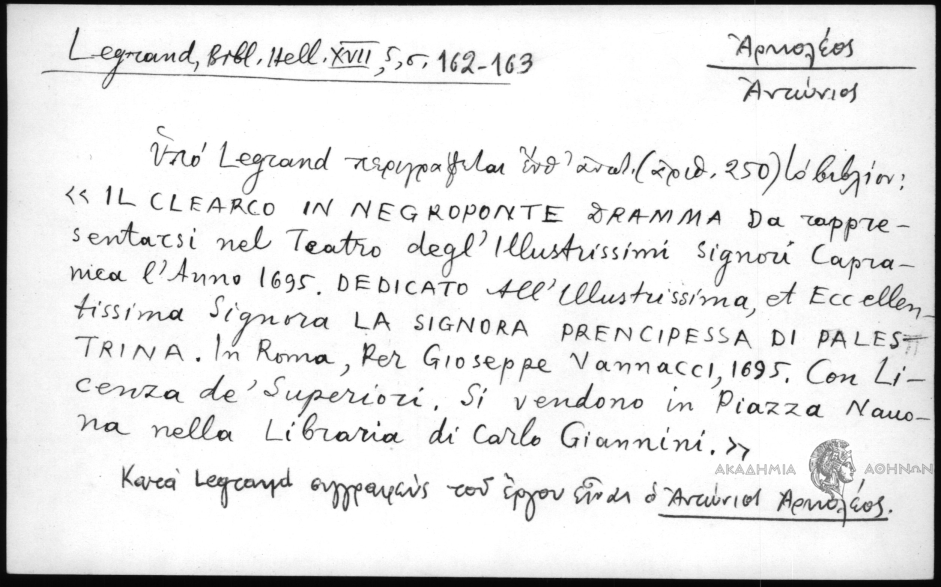 Legrand, Bibl. Hell. XVII, 5, σ. 162-163
Ἀρκολέος
Ἀντώνιος
Ὑπό Legrand περιγράφεται ἐνθ' ἀνωτ. (ἀριθ. 250) τό βιβλίον:
«IL CLEARCO IN NEGROPONTE DRAMMA Da rappre-
sentarsi nel Teatro degl'Illustrissimi Signori Capra-
nica l'Anno 1695. DEDICATO All'Illustrissima, et Eccellen-
tissima Signora LA SIGNORA PRENCIPESSA DI PALES-
TRINA. In Roma, Per Gioseppe Vannacci, 1695. Con Li-
cenza de' Superiori. Si vendono in Piazza Navo-
na nella Libraria di Carlo Giannini.»
ΑΚΑΔΗΜΙΑ ΑΘΗΝΩΝ
Κατά Legrand συγγραφεύς τοῦ ἔργου εἶναι ὁ Ἀντώνιος Ἀρκολέος.